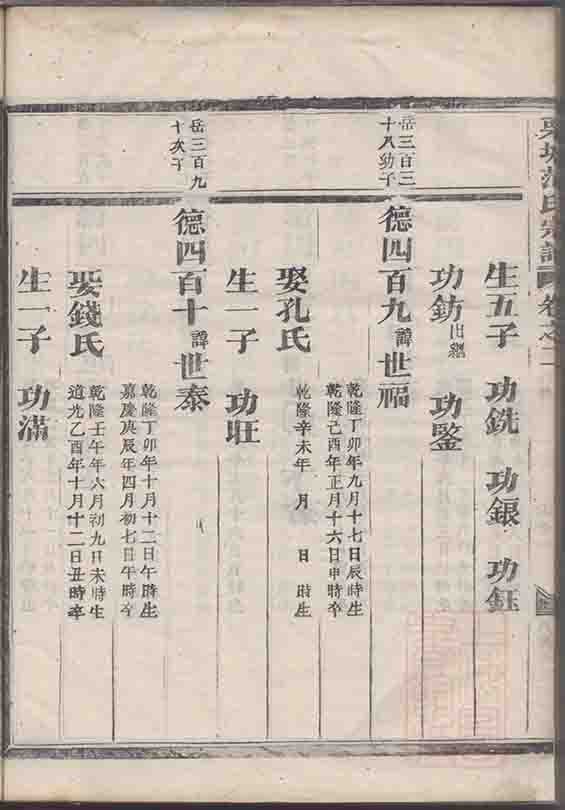 氏宗譜 卷之二
生五子 功銑 功銀 功鈺
功鈁出繼 功鋻
岳三百三
十八幼子
德四百九諱世福
乾隆丁卯年九月十七日辰時生
乾隆己酉年正月十六日申時卒
娶孔氏
乾隆辛未年 月 日 時生
生一子 功旺
岳三百九
十次子
德四百十諱世泰
乾隆丁卯年十月十二日午時生
嘉慶庚辰年四月初七日午時卒
娶錢氏
乾隆壬午年六月初九日未時生
道光乙酉年十月十二日丑時卒
生一子 功滿